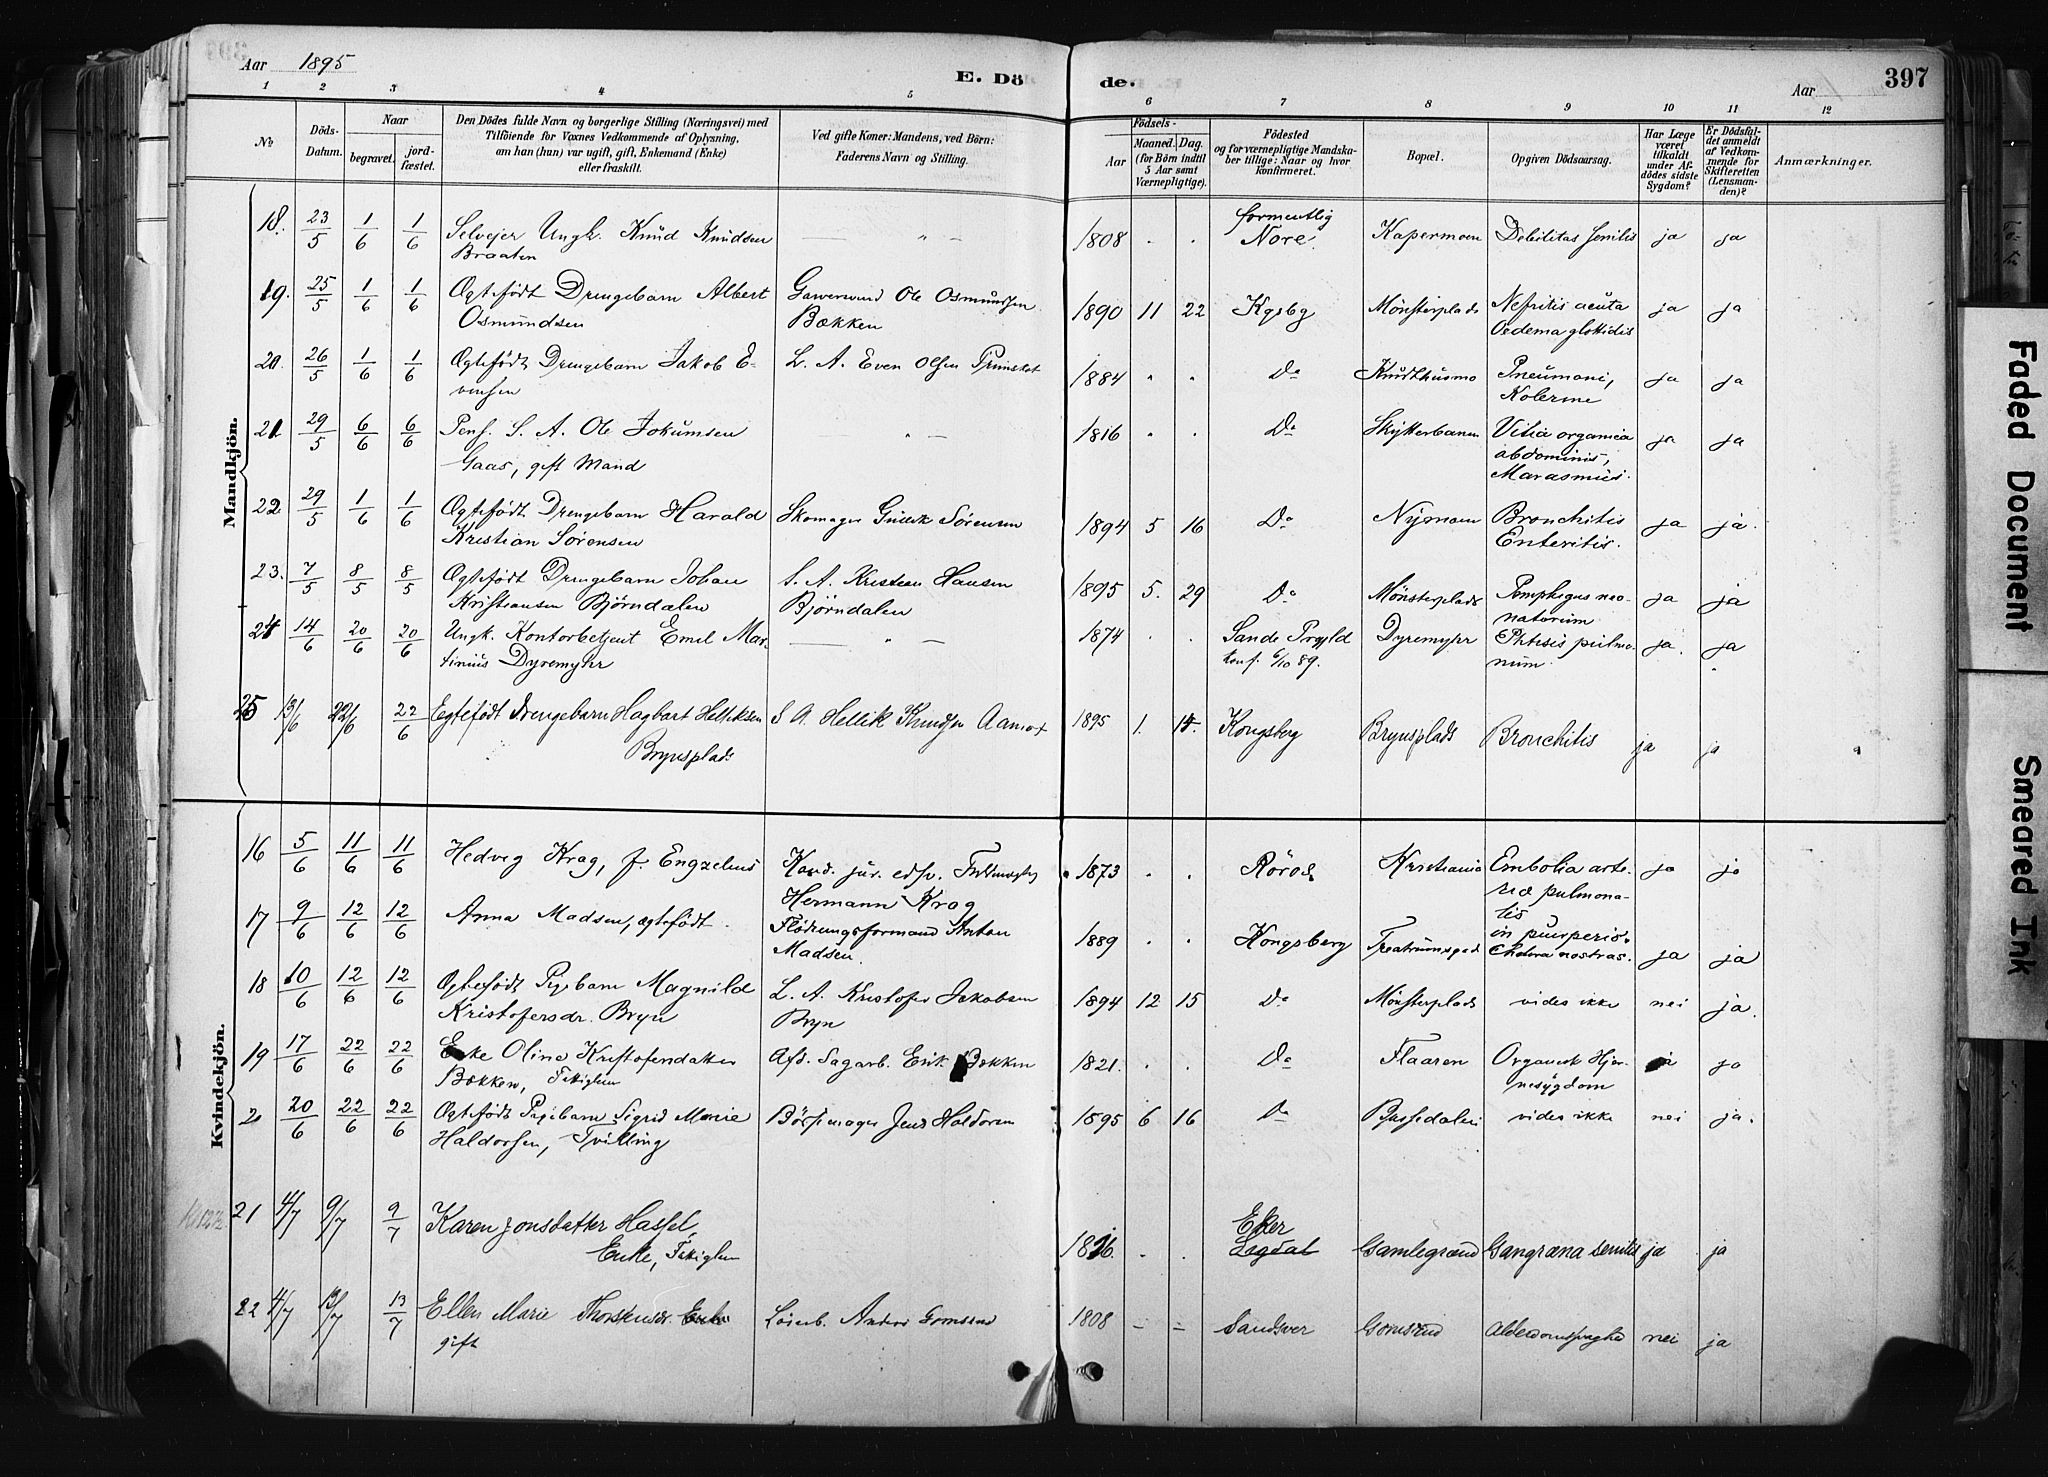 Aar 1895
E. Dö
de.
Aar
397
1 2 3 4 5 6 7 8 9 10 11 12
No
Döds-Datum.
Naar
begravet.
jord-fæstet.
Den Dödes fulde Navn og borgerlige Stilling (Næringsvei) med
Tilföiende for Voxnes Vedkommende af Oplysning,
om han (hun) var ugift, gift, Enkemand (Enke)
eller fraskilt.
Ved gifte Koner: Mandens, ved Börn:
Faderens Navn og Stilling.
Födsels-
Aar
Maaned. Dag.
(for Börn indtil
5 Aar samt
Værnepligtige).
Födested
og for værnepligtige Mandska-
ber tillige: Naar og hvor
konfirmeret.
Bopæl.
Opgiven Dödsaarsag.
Har Læge
været
tilkaldt
under Af-
dödes sidste
Sygdom?
Er Dödsfal-
det anmeldt
af Vedkom-
mende for
Skifteretten
(Lensman-
den)?
Anmærkninger.
Mandkjön.
18. 23/5 1/6 1/6 Selvejer Ungk. Knud Knudsen — " — 1808 . . formentlig Nore. Kapermoen Debilitas senilis ja ja
Braaten
19. 25/5 1/6 1/6 Ægtefødt Drengebarn Albert Gaversvend Ole Osmundsen 1890 11 22 Kgsbg Mönsterplads Nefritis acuta ja ja
Osmundsen Bækken Oedema glottidis
20. 26/5 1/6 1/6 Ægtefødt Drengebarn Jakob E- L. A. Even Olsen 1884 " " Do Knudthusmo Pneumoni, ja ja
vensen Kolerine
21. 29/5 6/6 6/6 Pens. S. A. Ole Jokumsen " — 1816 . . Do Skytterbanen Vitia organica ja ja
Gaas, gift Mand abdominis,
Marasmus.
22 29/5 1/6 1/6 Ægtefødt Drengebarn Harald Skomager Gullik Sörensen 1894 5 16 Do Nymoen Bronchitis ja ja.
Kristian Sörensen Enteritis.
23. 7/5 8/5 8/5 Ægtefødt Drengebarn Johan S. A. Kristian Hansen 1895 5. 29 Do Mönsterplads Pemphigus neo- ja ja
Kristiansen Björndalen Björndalen natorium
24 14/6 20/6 20/6 Ungk. Kontorbetjent Emil Mar- — " — 1874 . . Sande Prgjld Dyremyhr Phtisis pulmo- ja. ja
tinius Dyremyhr konf. 6/10 89. num.
25 13/6 22/6 22/6 Egtefødt Drengebarn Hagbart Helliksen S A. Hellik Knudsen Aamot 1895 1. 15. Kongsberg Brynsplads Bronchitis ja ja
Brynsplads
Kvindekjön.
16 5/6 11/6 11/6 Hedvig Krag, f. Engzelius Kand. jur. edsv. 1873 . . Röros Kristiania Embolia arte- ja ja
Hermann Krag riæ pulmona-
lis
in puerperio.
17 9/6 12/6 12/6 Anna Madsen, ægtefødt. Flödningsformand Anton 1889 . . Kongsberg Cholera nostras. ja ja
Madsen.
18 10/6 12/6 12/6 Ægtefødt Pigebarn Magnild L. A. Kristofer Jakobsen 1894 12 15 Do Mönsterplads vides ikke nei ja.
Kristofersdr. Bryn Bryn
19 17/6 22/6 22/6 Enke Oline Kristofersdatter Afd. Sagarb. Erik Bækken 1821. . . Do Flaaren Organisk Hjer- ja ja
Bækken, Fattiglem nesygdom
20 20/6 22/6 22/6 Ægtefødt Pigebarn Sigrid Marie Börsemager Jens Haldorsen 1895 6 16 Do Bussedalen vides ikke nei ja.
Haldorsen, Tvilling
21 4/7 9/7 9/7 Karen Jonsdatter Hassel, 1816. . . Eker Sigdal Gamlegrænd Gangræna senilis ja ja
Enke, Fattiglem
22 4/7 13/7 13/7 Ellen Marie Enke Anders Gomsrud 1808 — — Sandsver Gomsrud nei ja
gift
Faded Document
Smeared Ink